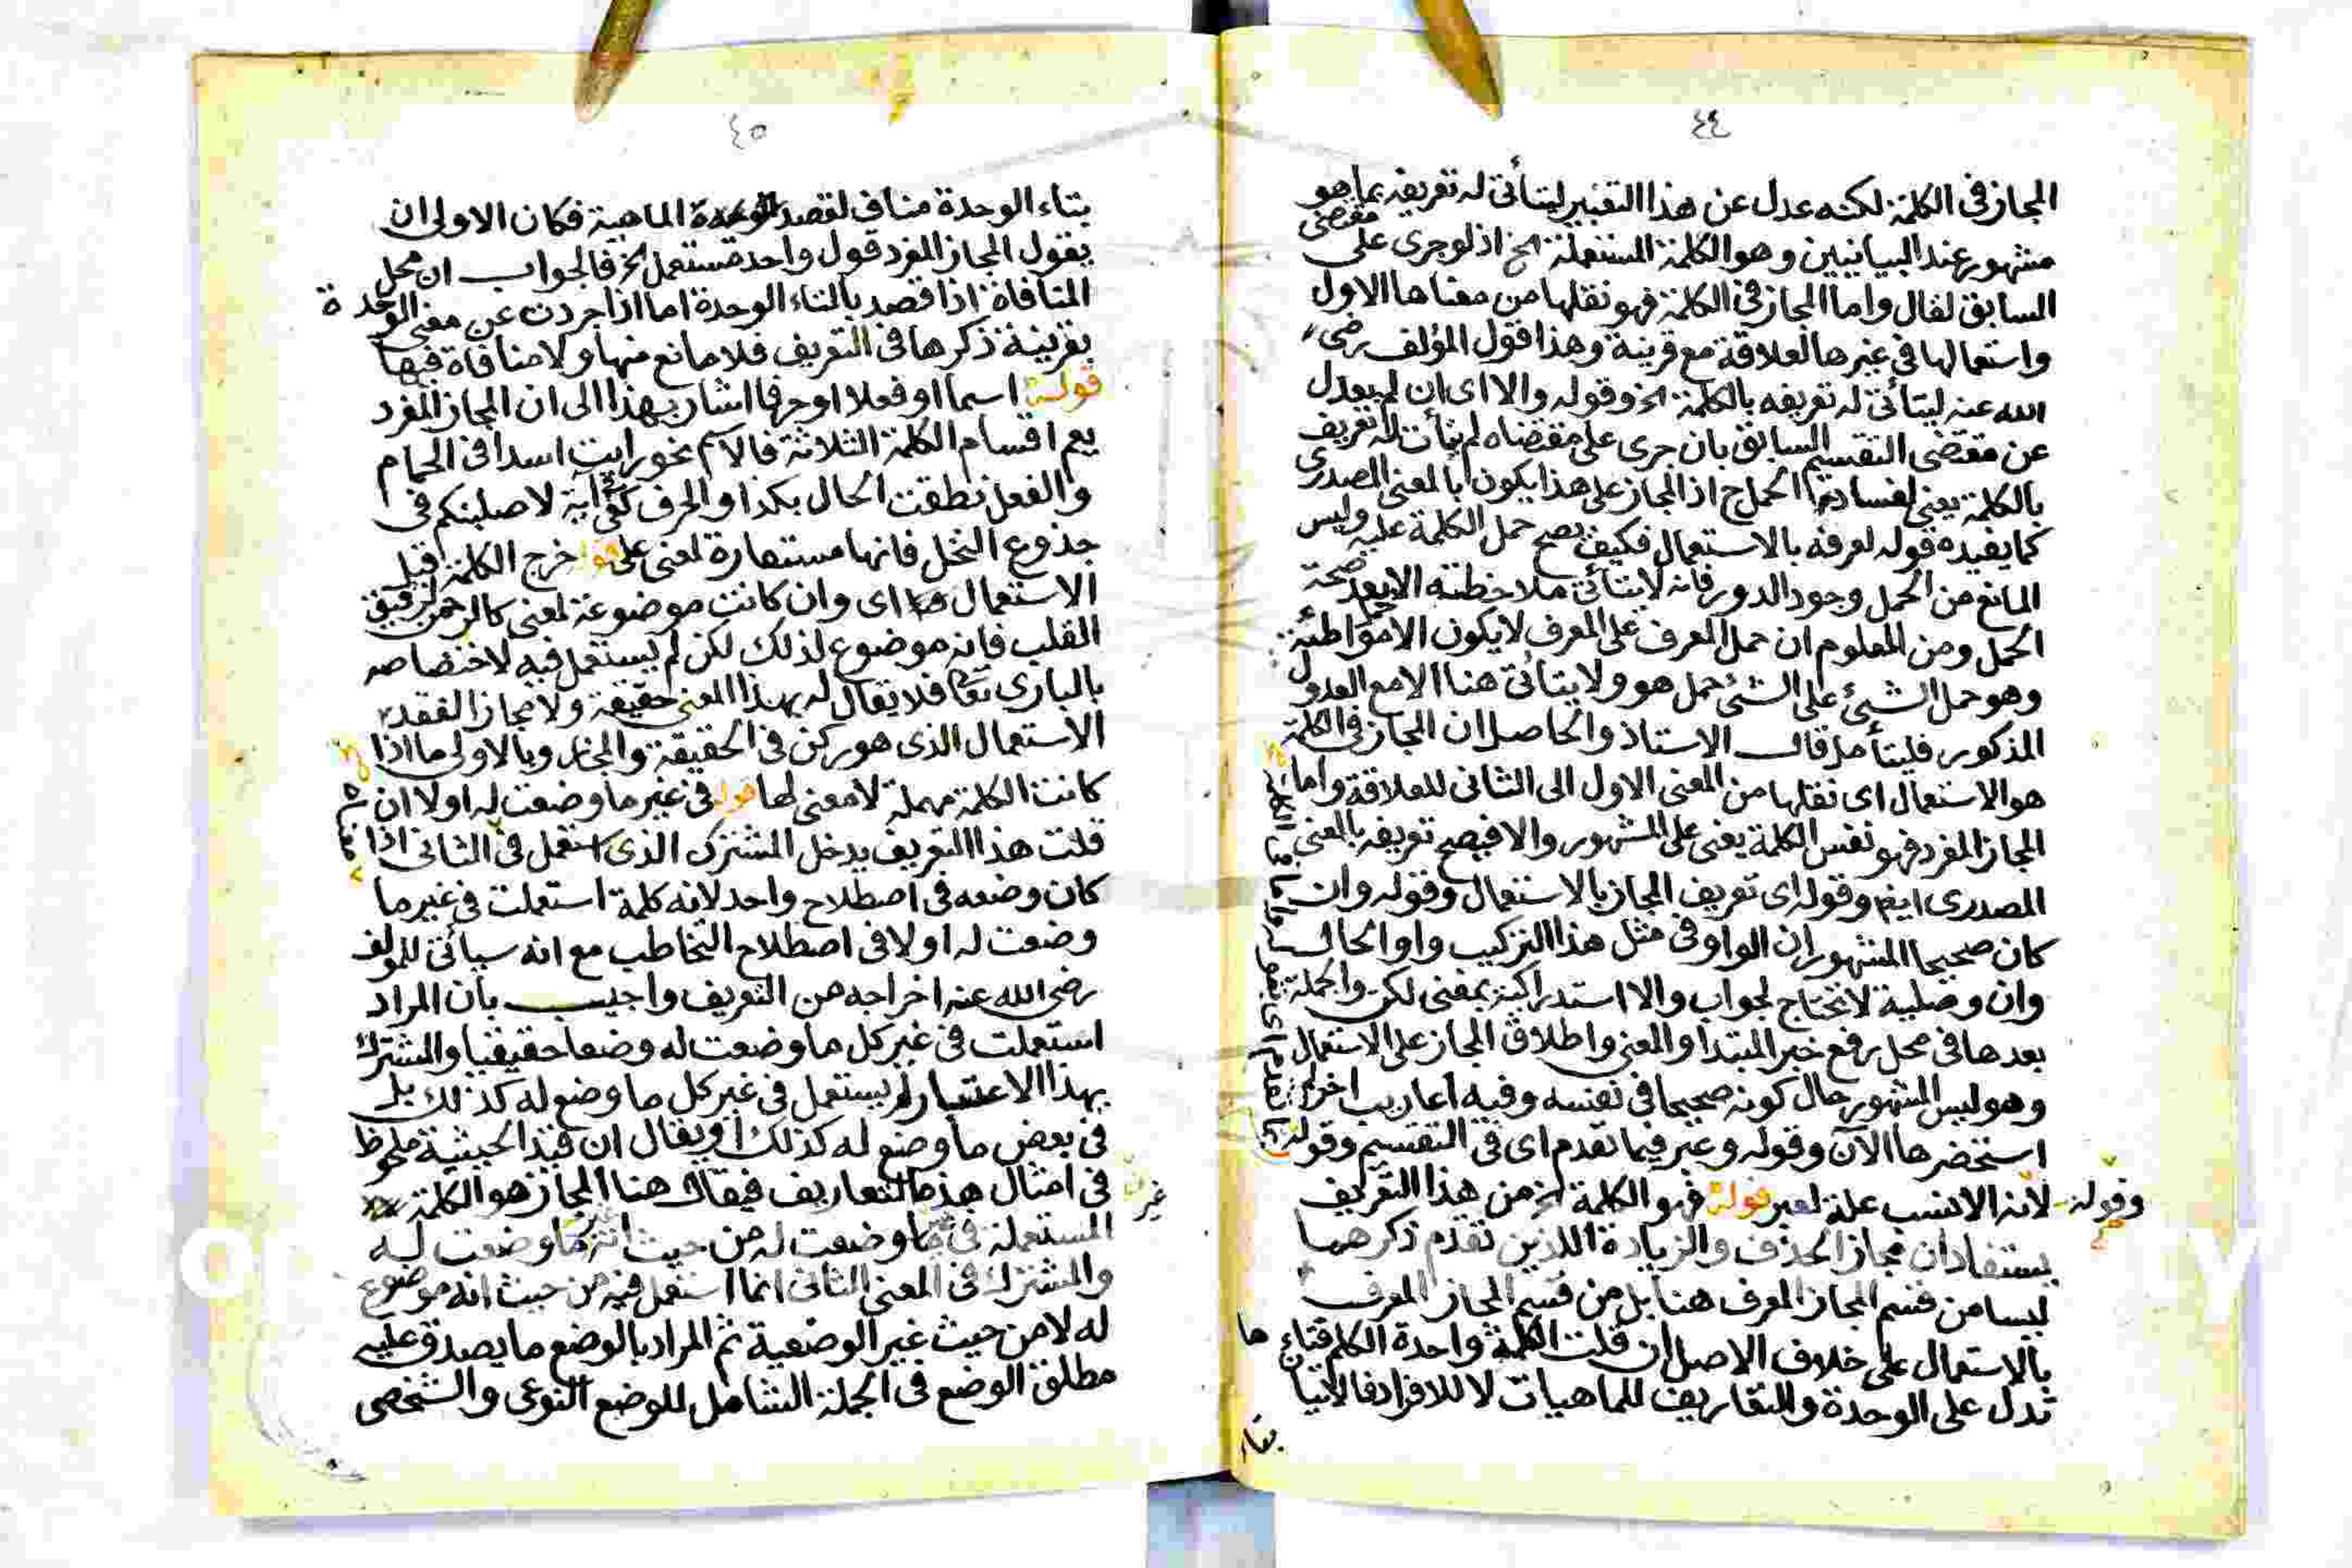 ٤٤
المجاز فى الكلمة لكنه عدل عن هذا التعبير ليتأتى له تعريفه بما هو
مشهور عند البيانيين وهو الكلمة المستعملة الخ اذ لو جرى على مقتضى
السابق لقال واما المجاز فى الكلمة فهو نقلها من معناها الاول
واستعمالها فى غيرها لعلاقة مع قرينة وهذا قول المؤلف رضى
الله عنه ليتأتى له تعريفه بالكلمة الخ وقوله والا اى ان لم يعدل
عن مقتضى التقسيم السابق بان جرى على مقتضاه لم يتأت له تعريف
بالكلمة يعنى لفساد الحمل ح اذ المجاز على هذا يكون بالمعنى المصدرى
كما يفيده قوله لعرفه بالاستعمال فكيف يصح حمل الكلمة عليه وليس
المانع من الحمل وجود الدور فانه لا يتأتى ملاحظته الا بعد صحة
الحمل ومن المعلوم ان حمل المعرف على المعرف لا يكون الا مواطئة
وهو حمل الشىء على الشىء حمل هو هو ولا يتأتى هنا الا مع العدول
المذكور فليتأمل قال الاستاذ والحاصل ان المجاز فى الكلمة
هو الاستعمال اى نقلها من المعنى الاول الى الثانى للعلاقة واما
المجاز المفرد فهو نفس الكلمة يعنى على المشهور والا فيصح تعريفه بالمعنى
المصدرى ايضا وقوله اى تعريف المجاز بالاستعمال وقوله وان
كان صحيحا المشهور ان الواو فى مثل هذا التركيب واو الحال
وان وصلية لا تحتاج لجواب والا استدراكية بمعنى لكن والجملة
بعدها فى محل رفع خبر المبتدا والمعنى واطلاق المجاز على الاستعمال
وهو ليس المشهور حال كونه صحيحا فى نفسه وفيه اعاريب اخر
استحضرها الآن وقوله وعبر فيما تقدم اى فى التقسيم وقوله
وقوله لانه الانسب علة لعبر قوله فهو الكلمة الخ من هذا التعريف
يستفاد ان مجاز الحذف والزيادة اللذين تقدم ذكرهما
ليسا من قسم المجاز المعرف هنا بل من قسم المجاز المعرف
بالاستعمال على خلاف الاصل ان قلت الكلمة واحدة الكلم فتاءها
تدل على الوحدة والتعاريف للماهيات لا للافراد فالاتيان
بتاء
٤٥
بتاء الوحدة مناف لقصد الماهية فكان الاولى ان
يقول المجاز المفرد قول واحد مستعمل الخ فالجواب ان محل
المنافاة اذا قصد بالتاء الوحدة اما اذا جردت عن معنى الوحدة
بقرينة ذكرها فى التعريف فلا مانع منها ولا منافاة فيها
قوله اسما او فعلا او حرفا اشار بهذا الى ان المجاز المفرد
يعم اقسام الكلمة الثلاثة فالاسم نحو رايت اسدا فى الحمام
والفعل نطقت الحال بكذا والحرف كفى آية لاصلبنكم فى
جذوع النخل فانها مستعارة لمعنى على قوله خرج الكلمة قبل
الاستعمال اى وان كانت موضوعة لمعنى كالرحمن لرقيق
القلب فانه موضوع لذلك لكن لم يستعمل فيه لاختصاصه
بالبارى تعا فلا يقال له بهذا المعنى حقيقة ولا مجاز الفقد
الاستعمال الذى هو ركن فى الحقيقة والمجاز وبالاولى ما اذا
كانت الكلمة مهملة لا معنى لها قوله فى غير ما وضعت له اولا ان
قلت هذا التعريف يدخل المشترك الذى استعمل فى الثانى اذا
كان وضعه فى اصطلاح واحد لانه كلمة استعملت فى غير ما
وضعت له اولا فى اصطلاح التخاطب مع انه سيأتى للمؤلف
رضى الله عنه اخراجه من التعريف واجيب بأن المراد
استعملت فى غير كل ما وضعت له وضعا حقيقيا والمشترك
بهذا الاعتبار لم يستعمل فى غير كل ما وضع له كذلك بل
فى بعض ما وضع له كذلك او يقال ان قيد الحيثية ملحوظ
فى امثال هذه التعاريف فيقال هنا المجاز هو الكلمة
المستعملة فى غير ما وضعت له من حيث انه غير ما وضعت له
والمشترك فى المعنى الثانى انما استعمل فيه من حيث انه موضوع
له لا من حيث غير الوضعية ثم المراد بالوضع ما يصدق عليه
مطلق الوضع فى الجملة الشامل للوضع النوعى والشخصى